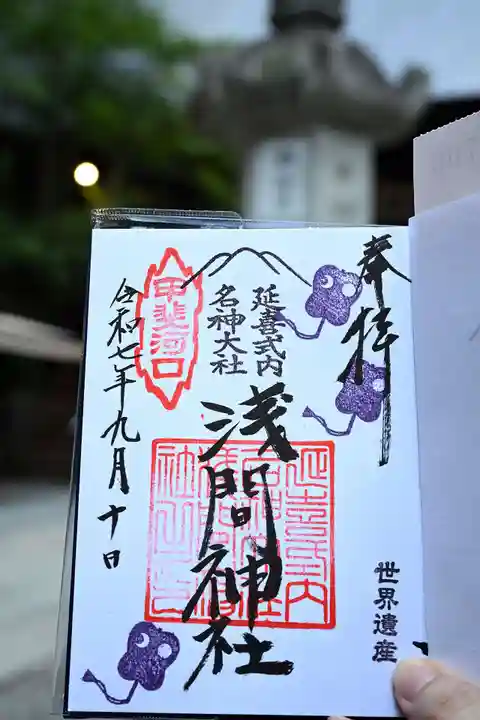 奉拝
世界遺産
延喜式内
名神大社
浅間神社
甲斐河口
令和七年九月十日